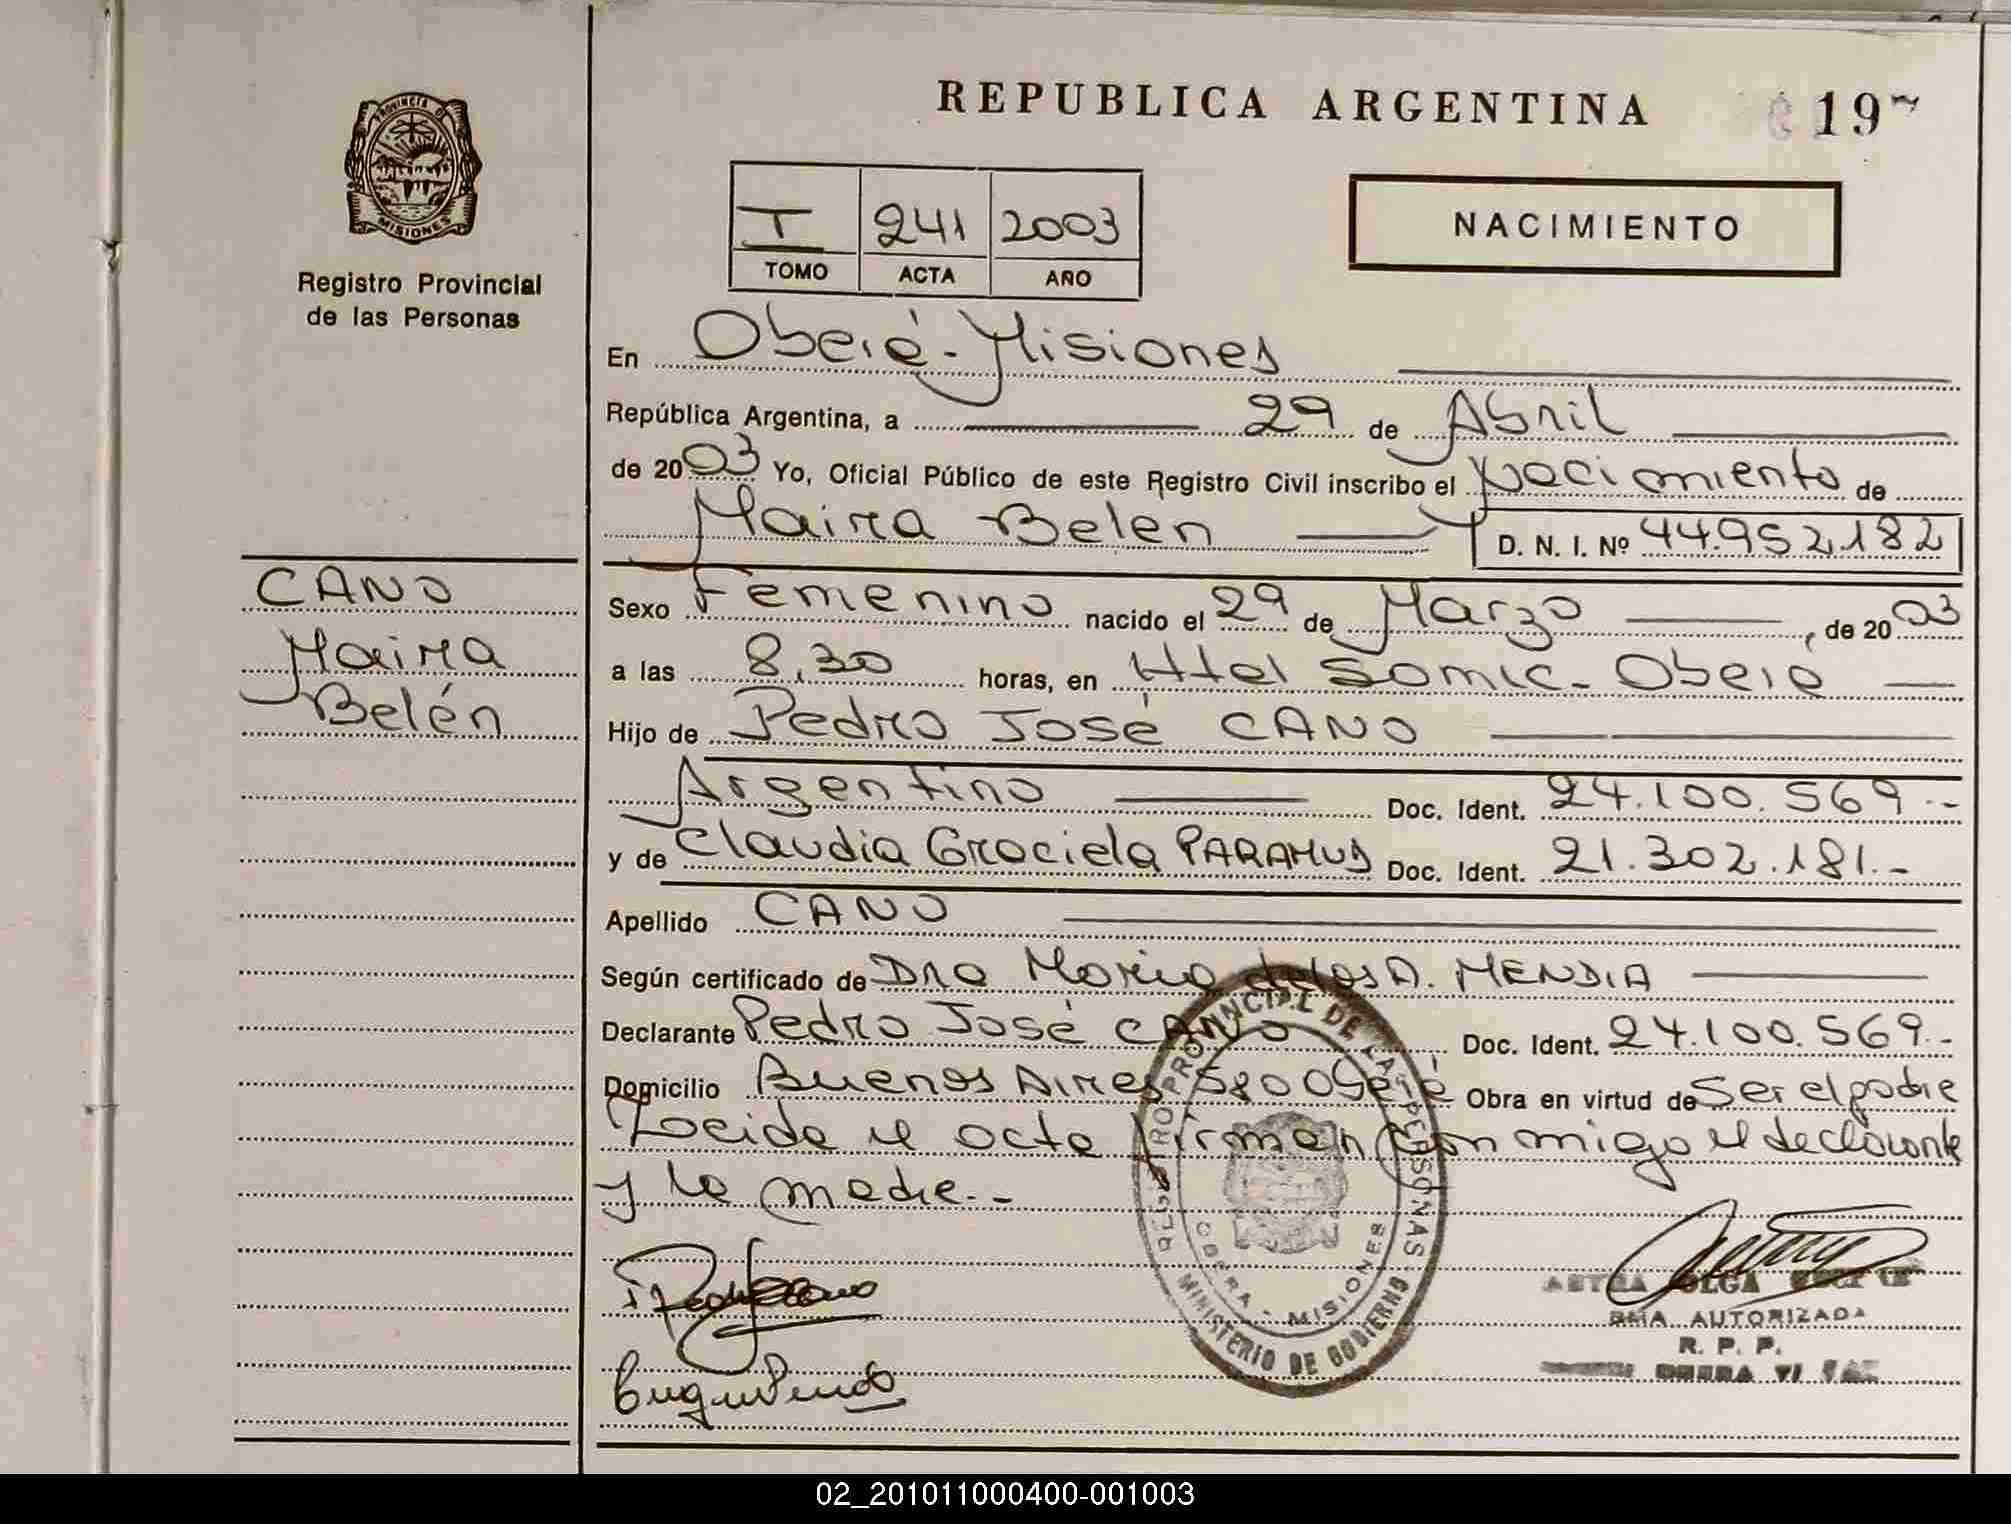 REPUBLICA ARGENTINA 19
PROVINCIA DE
MISIONES
Registro Provincial
de las Personas
T 241 2003
TOMO ACTA AÑO
NACIMIENTO
En Oberá - Misiones
República Argentina, a 29 de Abril
de 2003 Yo, Oficial Público de este Registro Civil inscribo el Nacimiento de
Maira Belen D. N. I. Nº 44.952.182
CANO
Maira
Belén
Sexo Femenino nacido el 29 de Marzo, de 2003
a las 8,30 horas, en Htal Samic - Oberá
Hijo de Pedro José CANO
Argentino Doc. Ident. 24.100.569.-
y de Claudia Graciela Doc. Ident. 21.302.181.-
Apellido CANO
Según certificado de Dra María de los A. MENDIA
Declarante Pedro José CANO Doc. Ident. 24.100.569.-
Domicilio Buenos Aires Oberá Obra en virtud de Ser el padre
Leida el acta firman conmigo el declarante
y la madre.-
REGISTRO PROVINCIAL DE LAS PERSONAS
OBERA - MISIONES
MINISTERIO DE GOBIERNO
OLGA
AUTORIZADA
R. P. P.
02_201011000400-001003